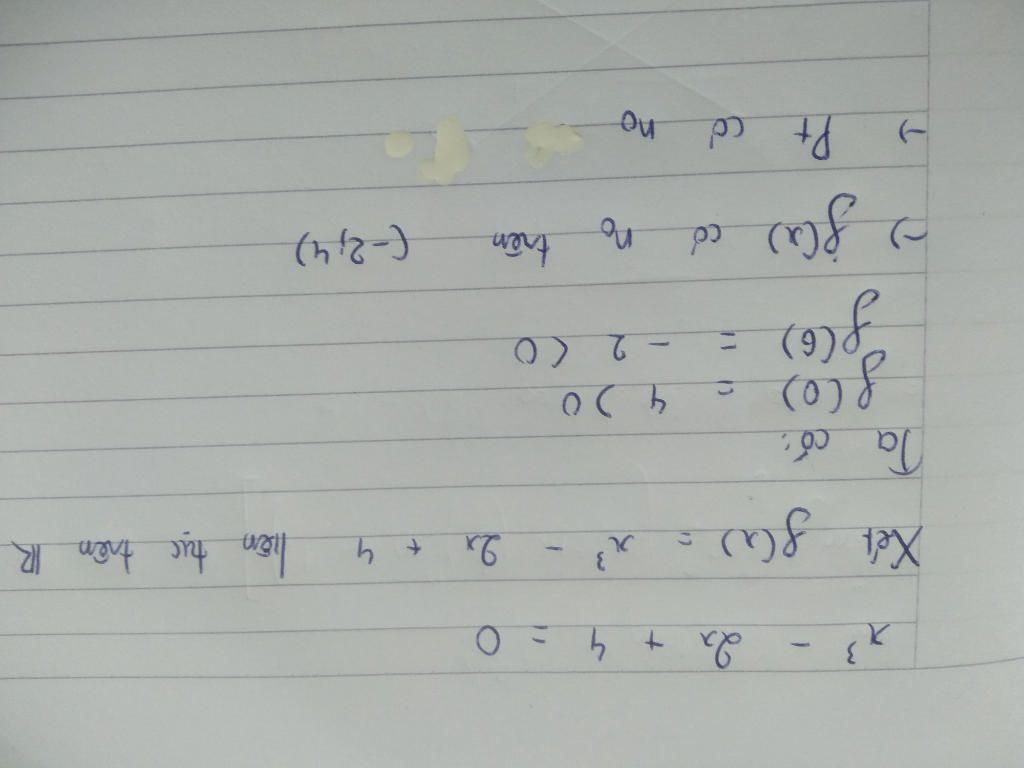 x³ - 2x + 4 = 0
Xét f(x) = x³ - 2x + 4 liên tục trên ℝ
Ta có:
f(0) = 4 > 0
f(6) = - 2 < 0
→ f(x) có no trên (-2; 4)
→ Pt có no